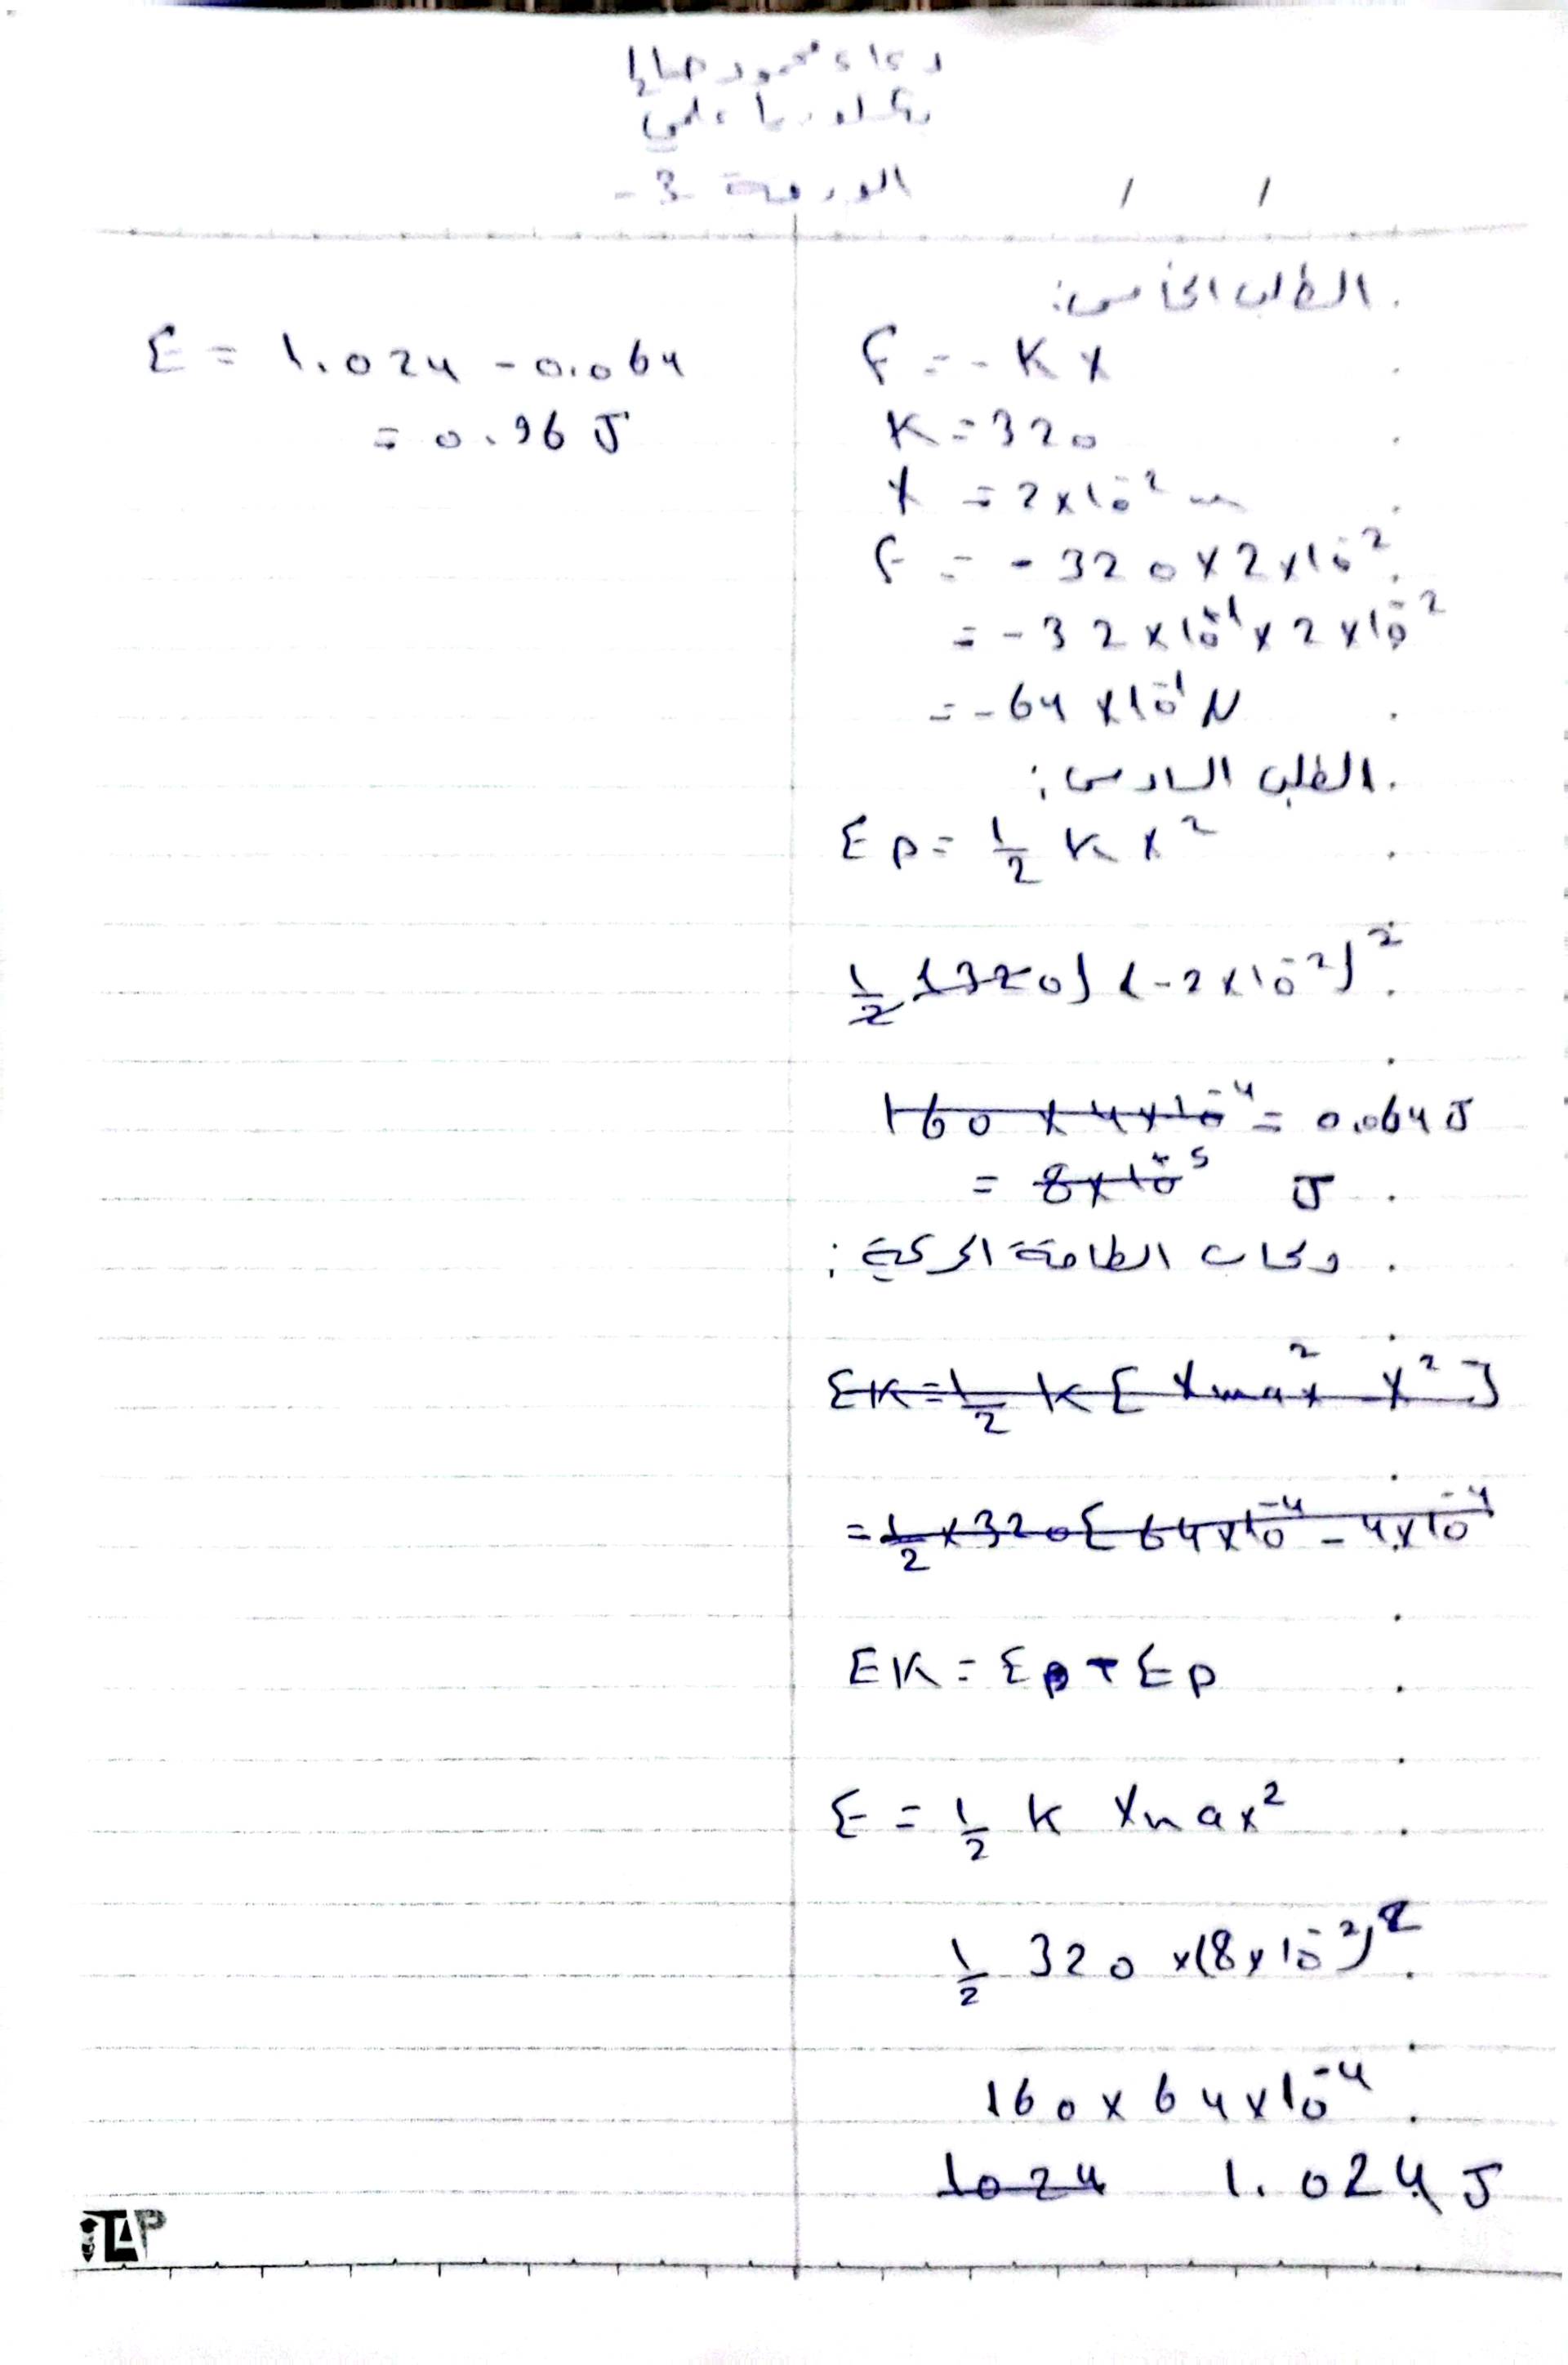 دعاء محمود صالح
بكلوريا علمي
الورقة -3-
/ /
الطلب الخامس:
F = - K X
K = 320
X = 2×10⁻² m
F = - 320 × 2×10⁻²
= - 32 × 10⁺¹ × 2 × 10⁻²
= - 64 × 10⁻¹ N
الطلب السادس:
Ep = 1/2 K X²
1/2 (320) (-2×10⁻²)²
160 × 4×10⁻⁴ = 0.064 J
= 8×10⁺⁵ J
وحساب الطاقة الحركية:
EK = 1/2 K [Xmax² X²]
= 1/2 × 320 [64×10⁻⁴ - 4×10⁻⁴
EK = Ep - Ep
E = 1/2 K Xmax²
1/2 320 ×(8×10⁻²)²
160 × 64×10⁻⁴
1024 1.024 J
E = 1.024 - 0.064
= 0.96 J
TAP